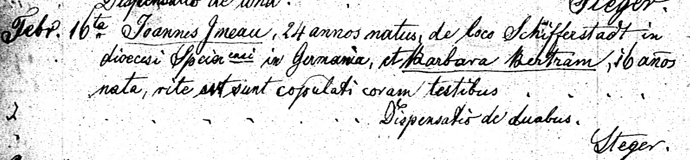 Dispensatio de una.
Steger.
Febr. 16ta Joannes Imeau, 24 annos natus, de loco Schifferstadt in
dioecesi Speiriensi in Germania, et Barbara Bertram, 16 años
nata, rite sunt copulati coram testibus . . . . .
2 . . . . . . . Dispensatio de duabus.
Steger.